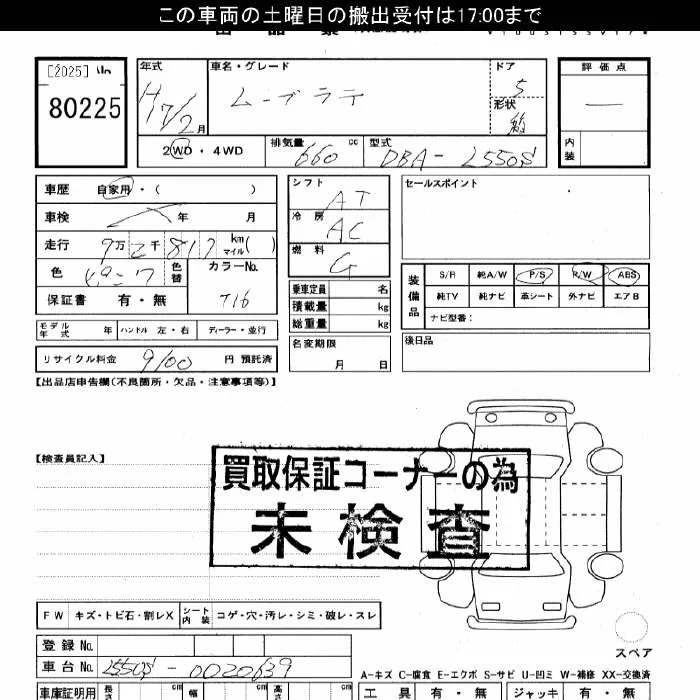 この車両の土曜日の搬出受付は17:00まで
[2025]
80225
年式
H17/2月
車名・グレード
ムーブラテ
ドア
5
形状
評価点
内装
2WD・4WD
排気量 660 cc
型式 DBA-L550S
車歴 自家用・( )
車検 年 月
走行 9万2千817 km マイル( )
色 ピンク 色替
カラーNo. T16
保証書 有・無
シフト AT
冷房 AC
燃料 G
乗車定員 名
積載量 kg
総重量 kg
セールスポイント
装備品
S/R 純A/W P/S R/W ABS
純TV 純ナビ 革シート 外ナビ エアB
ナビ型番:
モデル年式 年 ハンドル 左・右 ディーラー・並行
名変期限
月 日
後日品
リサイクル料金 9100 円 預託済
【出品店申告欄(不良箇所・欠品・注意事項等)】
【検査員記入】
買取保証コーナーの為
未検査
FW キズ・トビ石・割レX シート内装 コゲ・穴・汚レ・シミ・破レ・スレ
スペア
登録No.
車台No. L550S-0020639
A-キズ C-腐食 E-エクボ S-サビ U-凹ミ W-補修 XX-交換済
車庫証明用 長さ cm 幅 cm 高さ cm
工具 有・無 ジャッキ 有・無